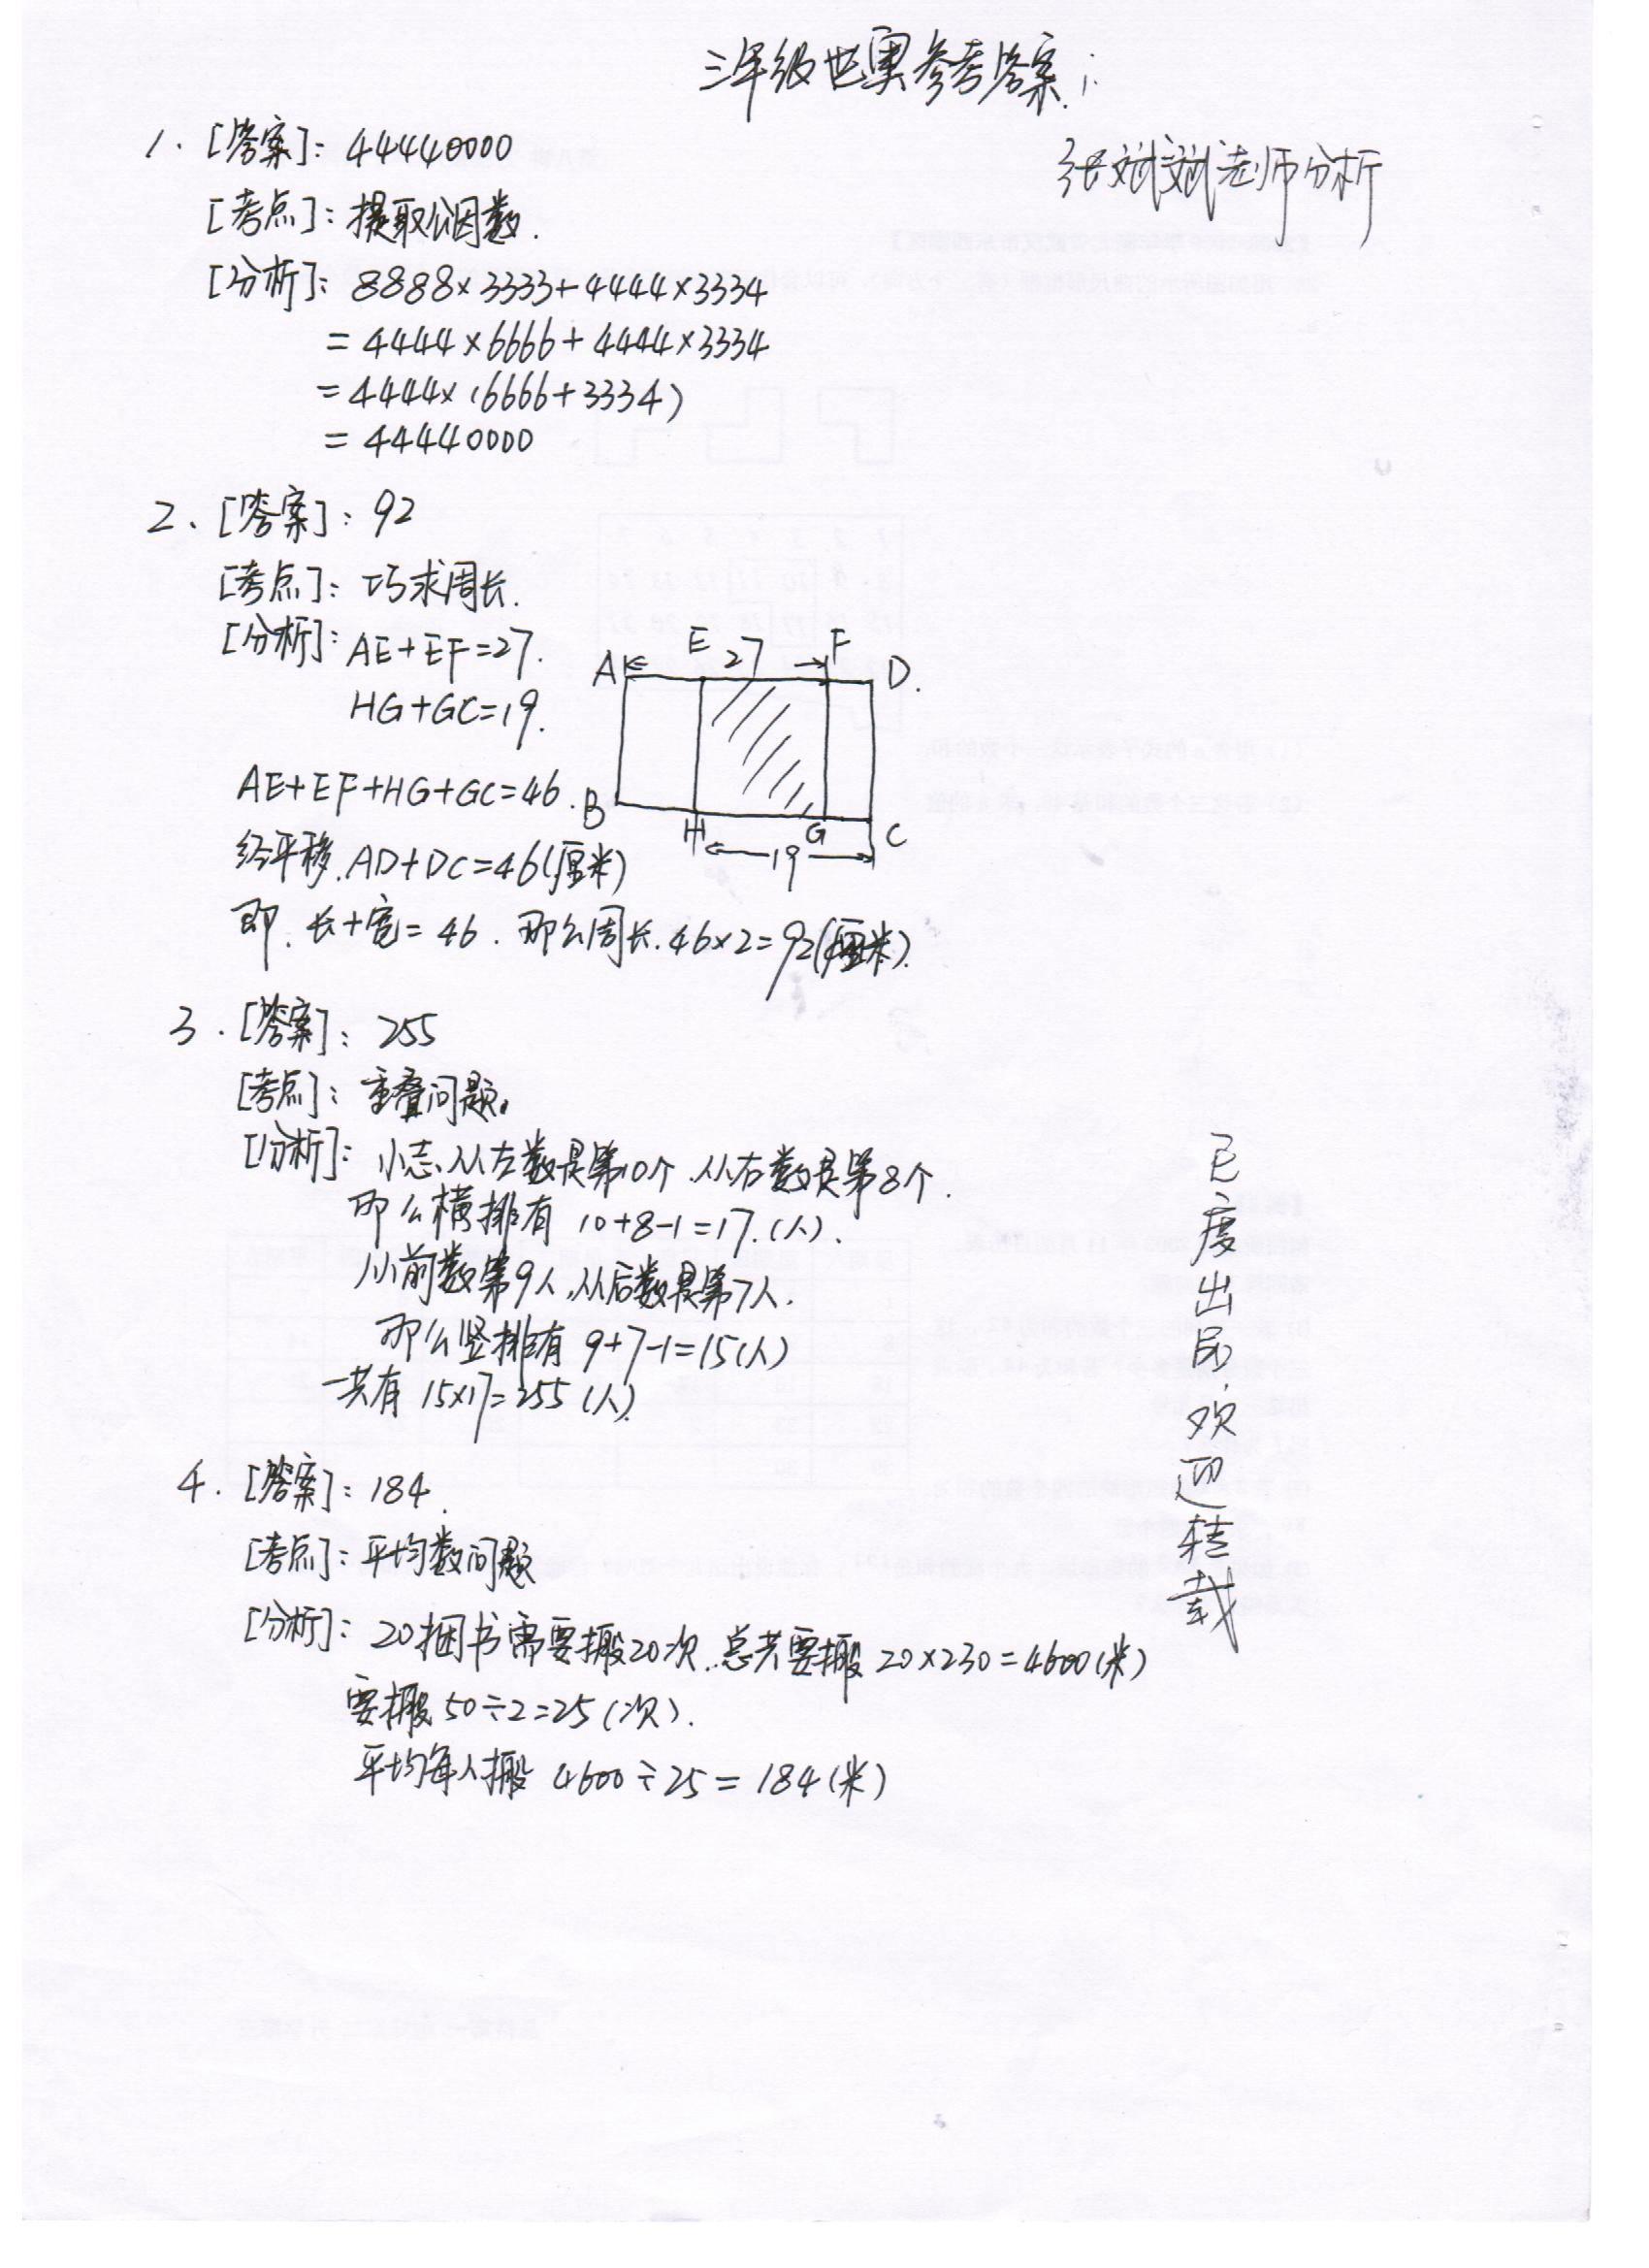 三年级世奥参考答案:
张斌斌老师分析
1. [答案]: 44440000
[考点]: 提取公因数.
[分析]: 8888×3333+4444×3334
=4444×6666+4444×3334
=4444×(6666+3334)
=44440000
2、[答案]: 92
[考点]: 巧求周长.
[分析]: AE+EF=27.
HG+GC=19.
AE+EF+HG+GC=46.
经平移.AD+DC=46(厘米)
即.长+宽=46.那么周长.46×2=92(厘米).
A E 27 F D.
B H G C
19
3.[答案]: 255
[考点]: 重叠问题.
[分析]: 小志从左数是第10个.从右数是第8个.
那么横排有 10+8-1=17.(人).
从前数第9人,从后数是第7人.
那么竖排有 9+7-1=15(人)
一共有 15×17=255(人).
4.[答案]: 184.
[考点]: 平均数问题
[分析]: 20捆书需要搬20次.总共要搬 20×230=4600(米)
要搬 50÷2=25(次).
平均每人搬 4600÷25=184(米)
已度出品.欢迎转载